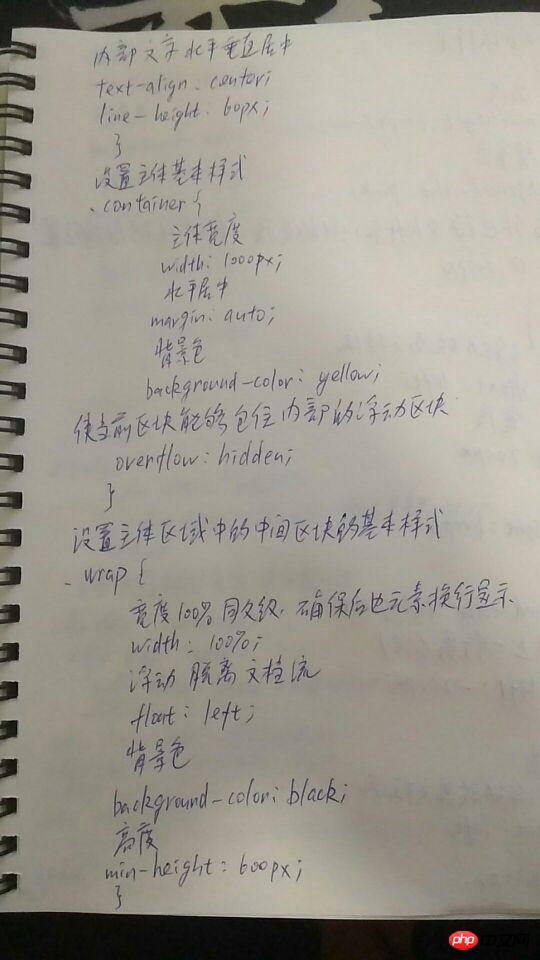 内部文字水平垂直居中
text-align: center;
line-height: 60px;
}
设置主体基本样式
.container {
主体宽度
width: 1000px;
水平居中
margin: auto;
背景色
background-color: yellow;
使当前区块能够包住内部的浮动区块
overflow: hidden;
}
设置主体区域中的中间区块的基本样式
.wrap {
宽度100%同父级,确保后边元素换行显示
width: 100%;
浮动 脱离文档流
float: left;
背景色
background-color: black;
高度
min-height: 600px;
}
php中文网